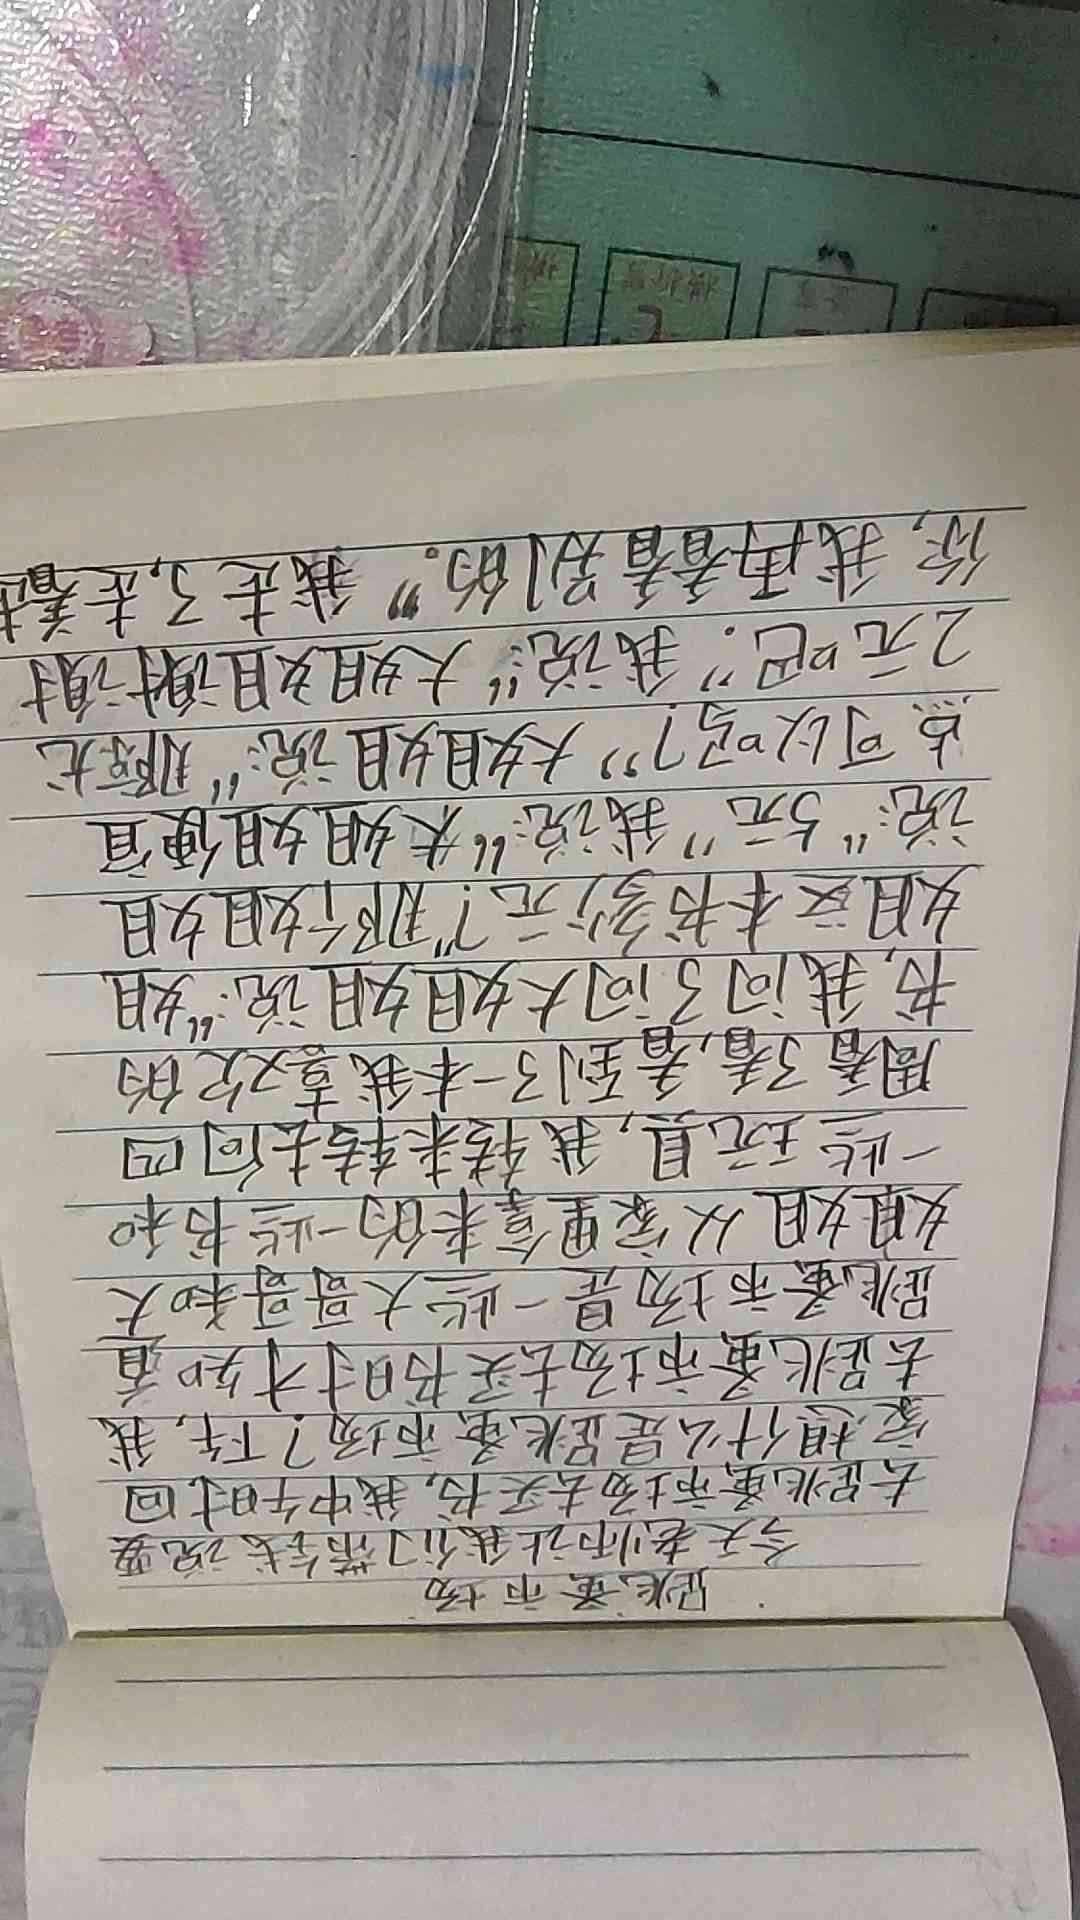 跳蚤市场
今天老师让我们带钱说要
去跳蚤市场去买书,我中午时回
家想什么是跳蚤市场?下午,我
去跳蚤市场去买书时才知道
跳蚤市场是一些大哥哥和大
姐姐从家里拿来的一些书和
一些玩具,我转来转去向四
周看了看,看到了一本我喜欢的
书,我问了问大姐姐说:“姐
姐这本书多少元?”那个姐姐
说:“5元”我说:“大姐姐便宜
点可以吗?”大姐姐说:“那就
2元吧.”我说:“大姐姐谢谢
你,我再看看别的。”我走了,走着走